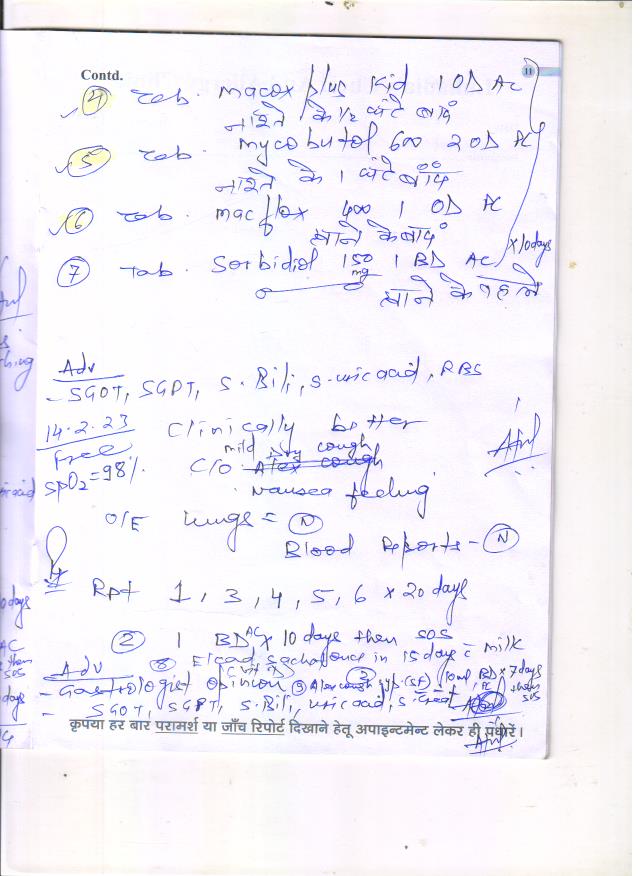 Contd.
11
④ Tab. Macox plus Kid 1 OD AC
नाश्ते के 1/2 घंटे बाद
⑤ Tab. Mycobutol 600 2 OD PC
नाश्ते के 1 घंटे बाद
⑥ Tab. Macflox 400 1 OD PC
खाने के बाद
⑦ Tab. Sorbidiol 150 mg 1 BD AC x 10 days
खाने के पहले
Adv
- SGOT, SGPT, S. Bili, S. uric acid, RBS
14.2.23 Clinically better
Free
SpO2 = 98% C/O mild dry cough
Nausea feeling
O/E Lungs = Ⓝ
Blood Reports - Ⓝ
Rpt 1, 3, 4, 5, 6 x 20 days
② 1 BD AC x 10 days then SOS
⑧ sachet once in 15 days c milk
Adv
- Gastrologist opinion ⑨ syp. (SF) BD PC x 7 days then SOS
- SGOT, SGPT, S. Bili, uric acid, S.
कृपया हर बार परामर्श या जाँच रिपोर्ट दिखाने हेतू अपाइन्टमेन्ट लेकर ही पधारें।
thing
uric acid
10 days
AC
then
SOS
days